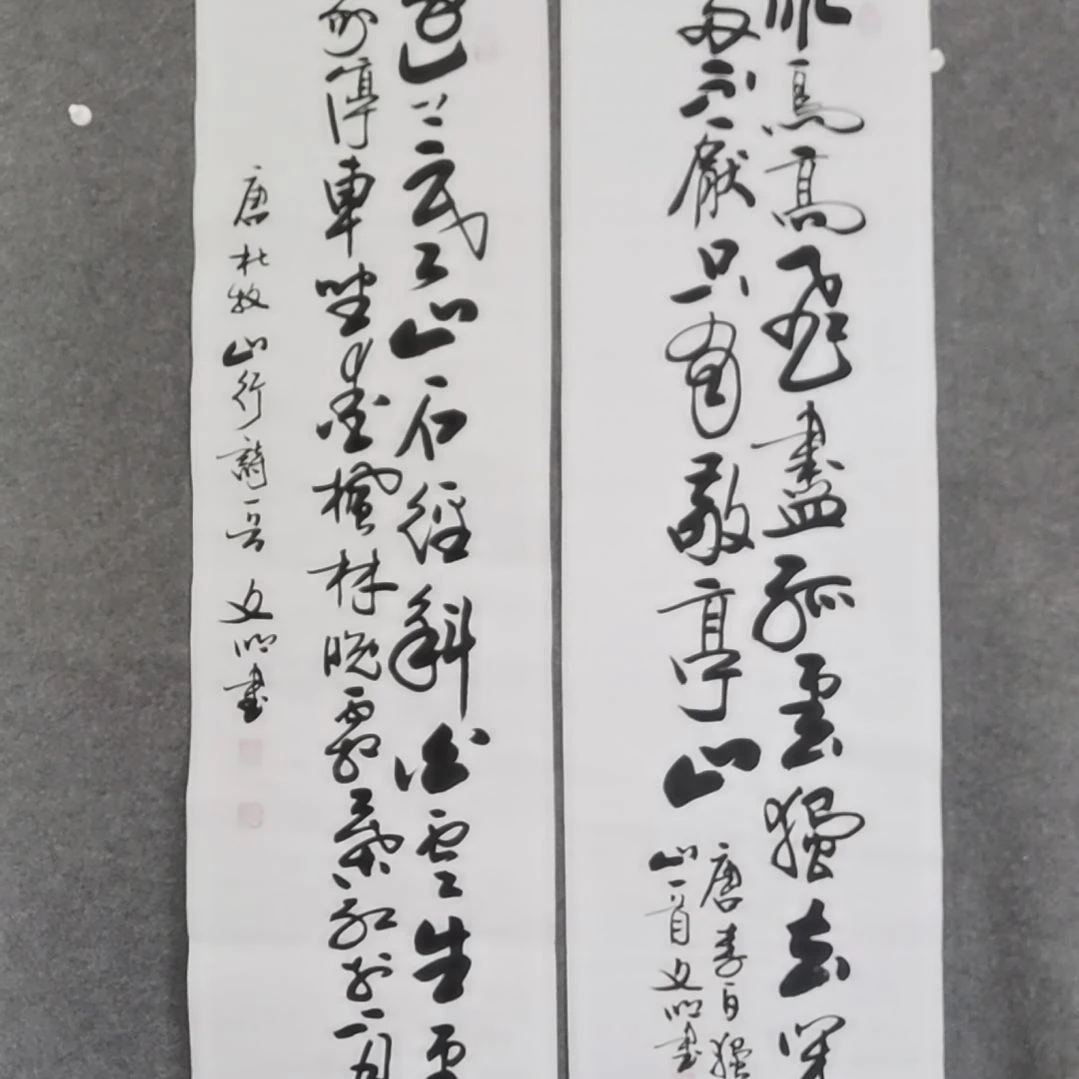 眾鳥高飛盡孤雲獨去閑
兩不厭只有敬亭山
唐李白獨
山一首文明書
遠上寒山石徑斜白雲生處
家停車坐愛楓林晚霜葉紅於二月
唐杜牧山行詩一首文明書